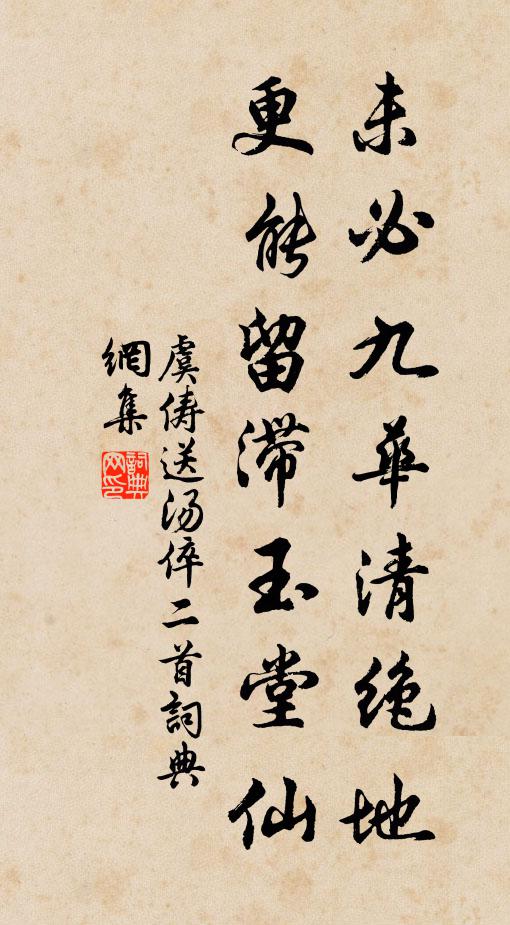 未必九華清絶地
更能留滯玉堂仙
虞儔送湯倅二首詞典
網集
詞典
网印